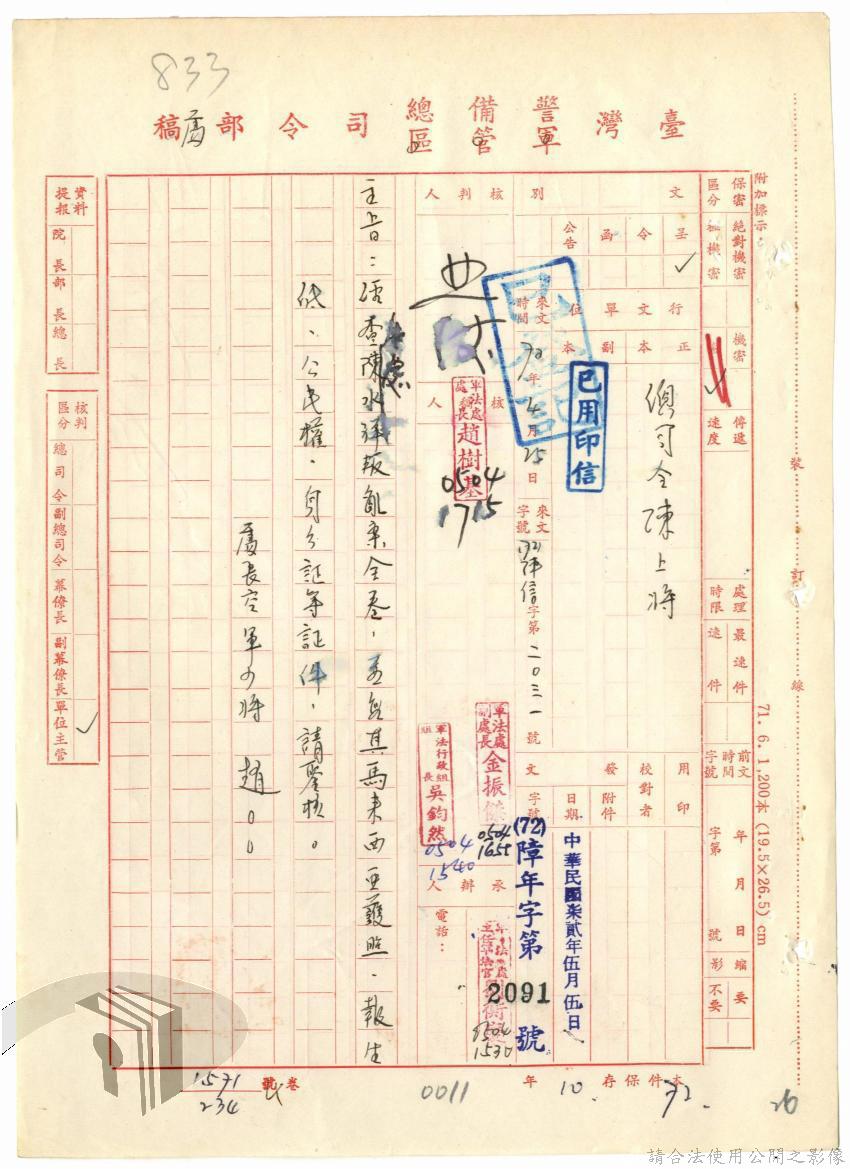 833
臺灣警備總司令部處稿
軍管區
附加標示
保密區分
絕對機密
極機密
機密
傳遞速度
處理時限
最速件
速件
前文時間字號
年月日
字第號
縮影
要
不要
裝訂線
71. 6. 1,200本 (19.5×26.5) cm
文別
呈
令
函
公告
行文單位
正本
副本
總司令陳上將
來文時間
72年4月25日
來文字號
字第二〇三一號
用印
校對者
發文
附件
日期
中華民國柒貳年伍月伍日
字號
(72)障年字第2091號
已登記
已用印信
核判人
核人
軍法處處長趙樹基
0504
1715
軍法處副處長金振傑
0504
1655
軍法行政組組長吳鈞然
0504
1540
承辦人
電話：
0504
1530
主旨：經查陳水祥叛亂案全卷，並無其馬來西亞護照、報生
紙、公民權、身分証等証件，請鑒核。
處長空軍少將趙〇〇
資料提報
院長
部長
總長
核判區分
總司令
副總司令
幕僚長
副幕僚長
單位主管
本件保存10年
72.
卷號
1571
234
0011
26
請合法使用公開之影像